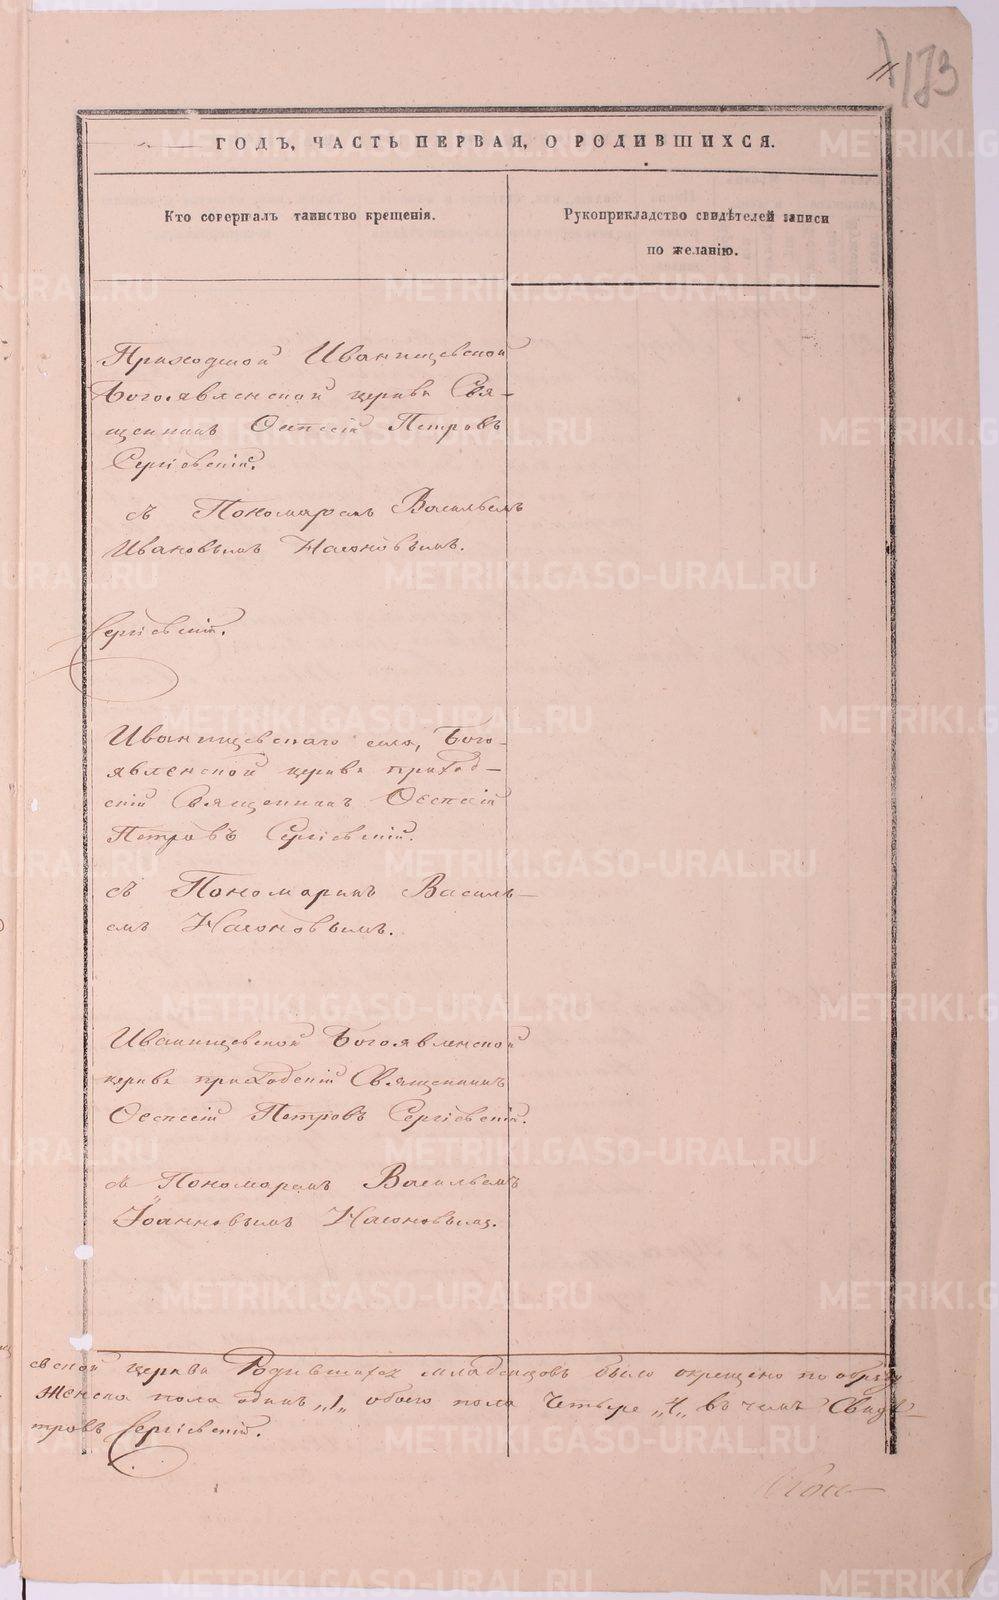 11
173
ГОДЪ, ЧАСТЬ ПЕРВАЯ, О РОДИВШИХСЯ.
Кто совершалъ таинство крещенія.
Рукоприкладство свидѣтелей записи
по желанію.
Приходской Иванищевской
Богоявленской церкви Свя-
щенникъ Петровъ
Сергіевскій.
съ Пономаремъ Васильемъ
Ивановымъ Насоновымъ.
Сергіевскій.
Иванищевскаго села, Бого-
явленской церкви приход-
скій Священникъ
Петровъ Сергіевскій.
съ Пономаремъ Василь-
емъ Насоновымъ.
Иванищевской Богоявленской
церкви приходскій Священникъ
Петровъ Сергіевскій.
съ Пономаремъ Васильемъ
Іоанновымъ Насоновымъ.
евской церкви Родившихся младенцовъ было окрещено по обряду
женска пола одинъ „1„ обоего пола четыре „4„ въ чемъ Свидѣ-
тровъ Сергіевскій.
METRIKI.GASO-URAL.RU